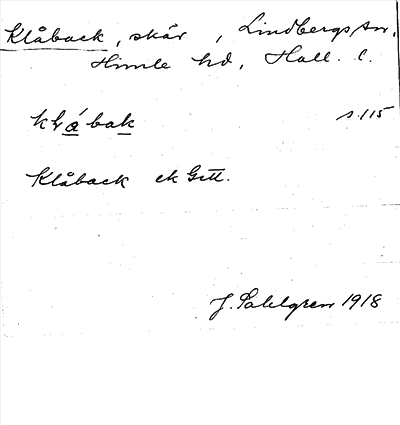 Klåback, skär, Lindbergs sn,
Himle hd, Hall. l.
klåbak s. 115
Klåback ek Gtt.
J. Sahlgren 1918